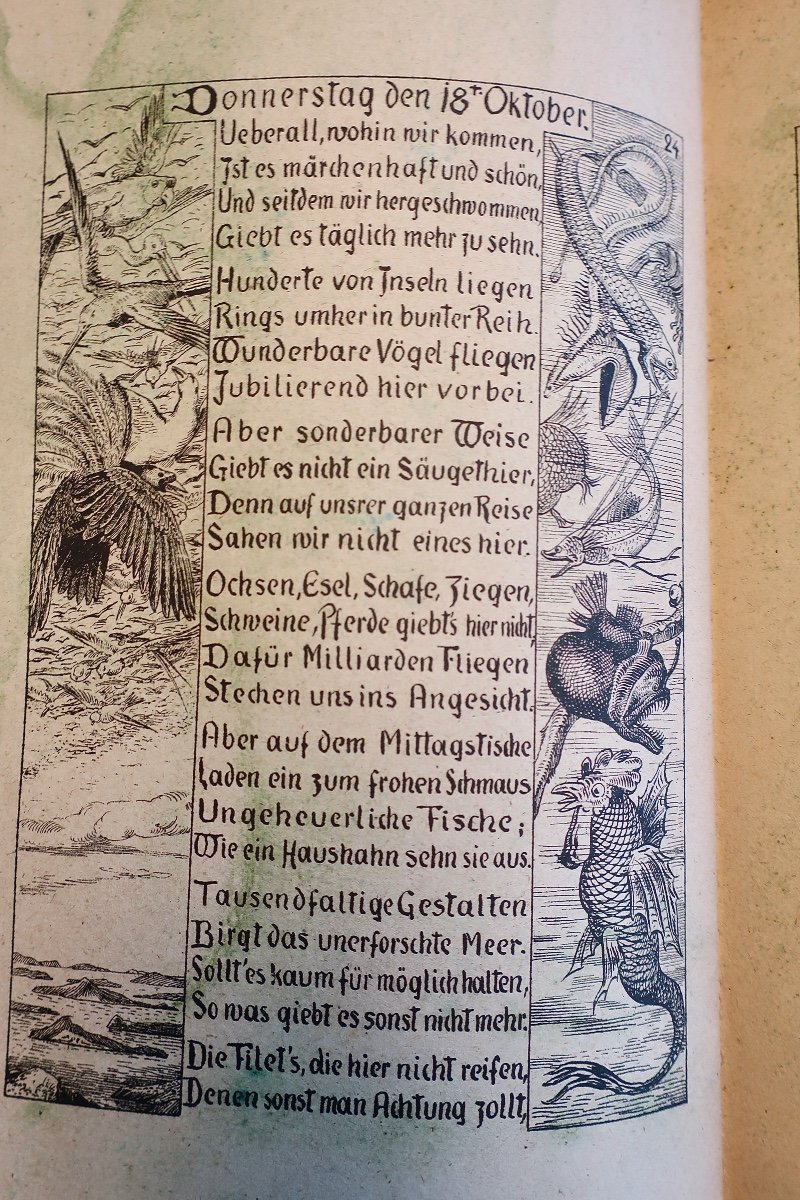 Donnerstag den 18t Oktober.
24
Ueberall, wohin wir kommen,
Ist es märchenhaft und schön,
Und seitdem wir hergeschwommen,
Giebt es täglich mehr zu sehn.
Hunderte von Inseln liegen
Rings umher in bunter Reih.
Wunderbare Vögel fliegen
Jubilierend hier vorbei.
Aber sonderbarer Weise
Giebt es nicht ein Säugethier,
Denn auf unsrer ganzen Reise
Sahen wir nicht eines hier.
Ochsen, Esel, Schafe, Ziegen,
Schweine, Pferde giebt's hier nicht,
Dafür Milliarden Fliegen
Stechen uns ins Angesicht.
Aber auf dem Mittagstische
Laden ein zum frohen Schmaus
Ungeheuerliche Fische;
Wie ein Haushahn sehn sie aus.
Tausendfaltige Gestalten
Birgt das unerforschte Meer.
Sollt'es kaum für möglich halten,
So was giebt es sonst nicht mehr.
Die Filet's, die hier nicht reifen,
Denen sonst man Achtung zollt,